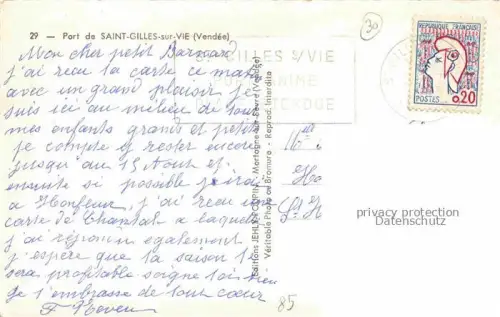 29 — Port de SAINT-GILLES-sur-VIE (Vendée)
30
Mon cher petit
j'ai reçu la carte ce matin
avec un grand plaisir je
suis ici au milieu de tous
mes enfants grands et petits
je compte y rester encore
jusqu'au 15 Aout et
ensuite si possible j'irai
a Honfleur, j'ai reçu une
carte de Chantal a laquelle
j'ai répondu egalement
j'espère que la saison te
sera profitable soigne toi bien
je t'embrasse de tout cœur
GILLES S/VIE
REPUBLIQUE FRANÇAISE
POSTES 0,20
Editions JEHLY-POUPIN - Mortagne-sur-Sèvre (Vendée)
Véritable Photo au Bromure - Reprod. Interdite
privacy protection
Datenschutz
85